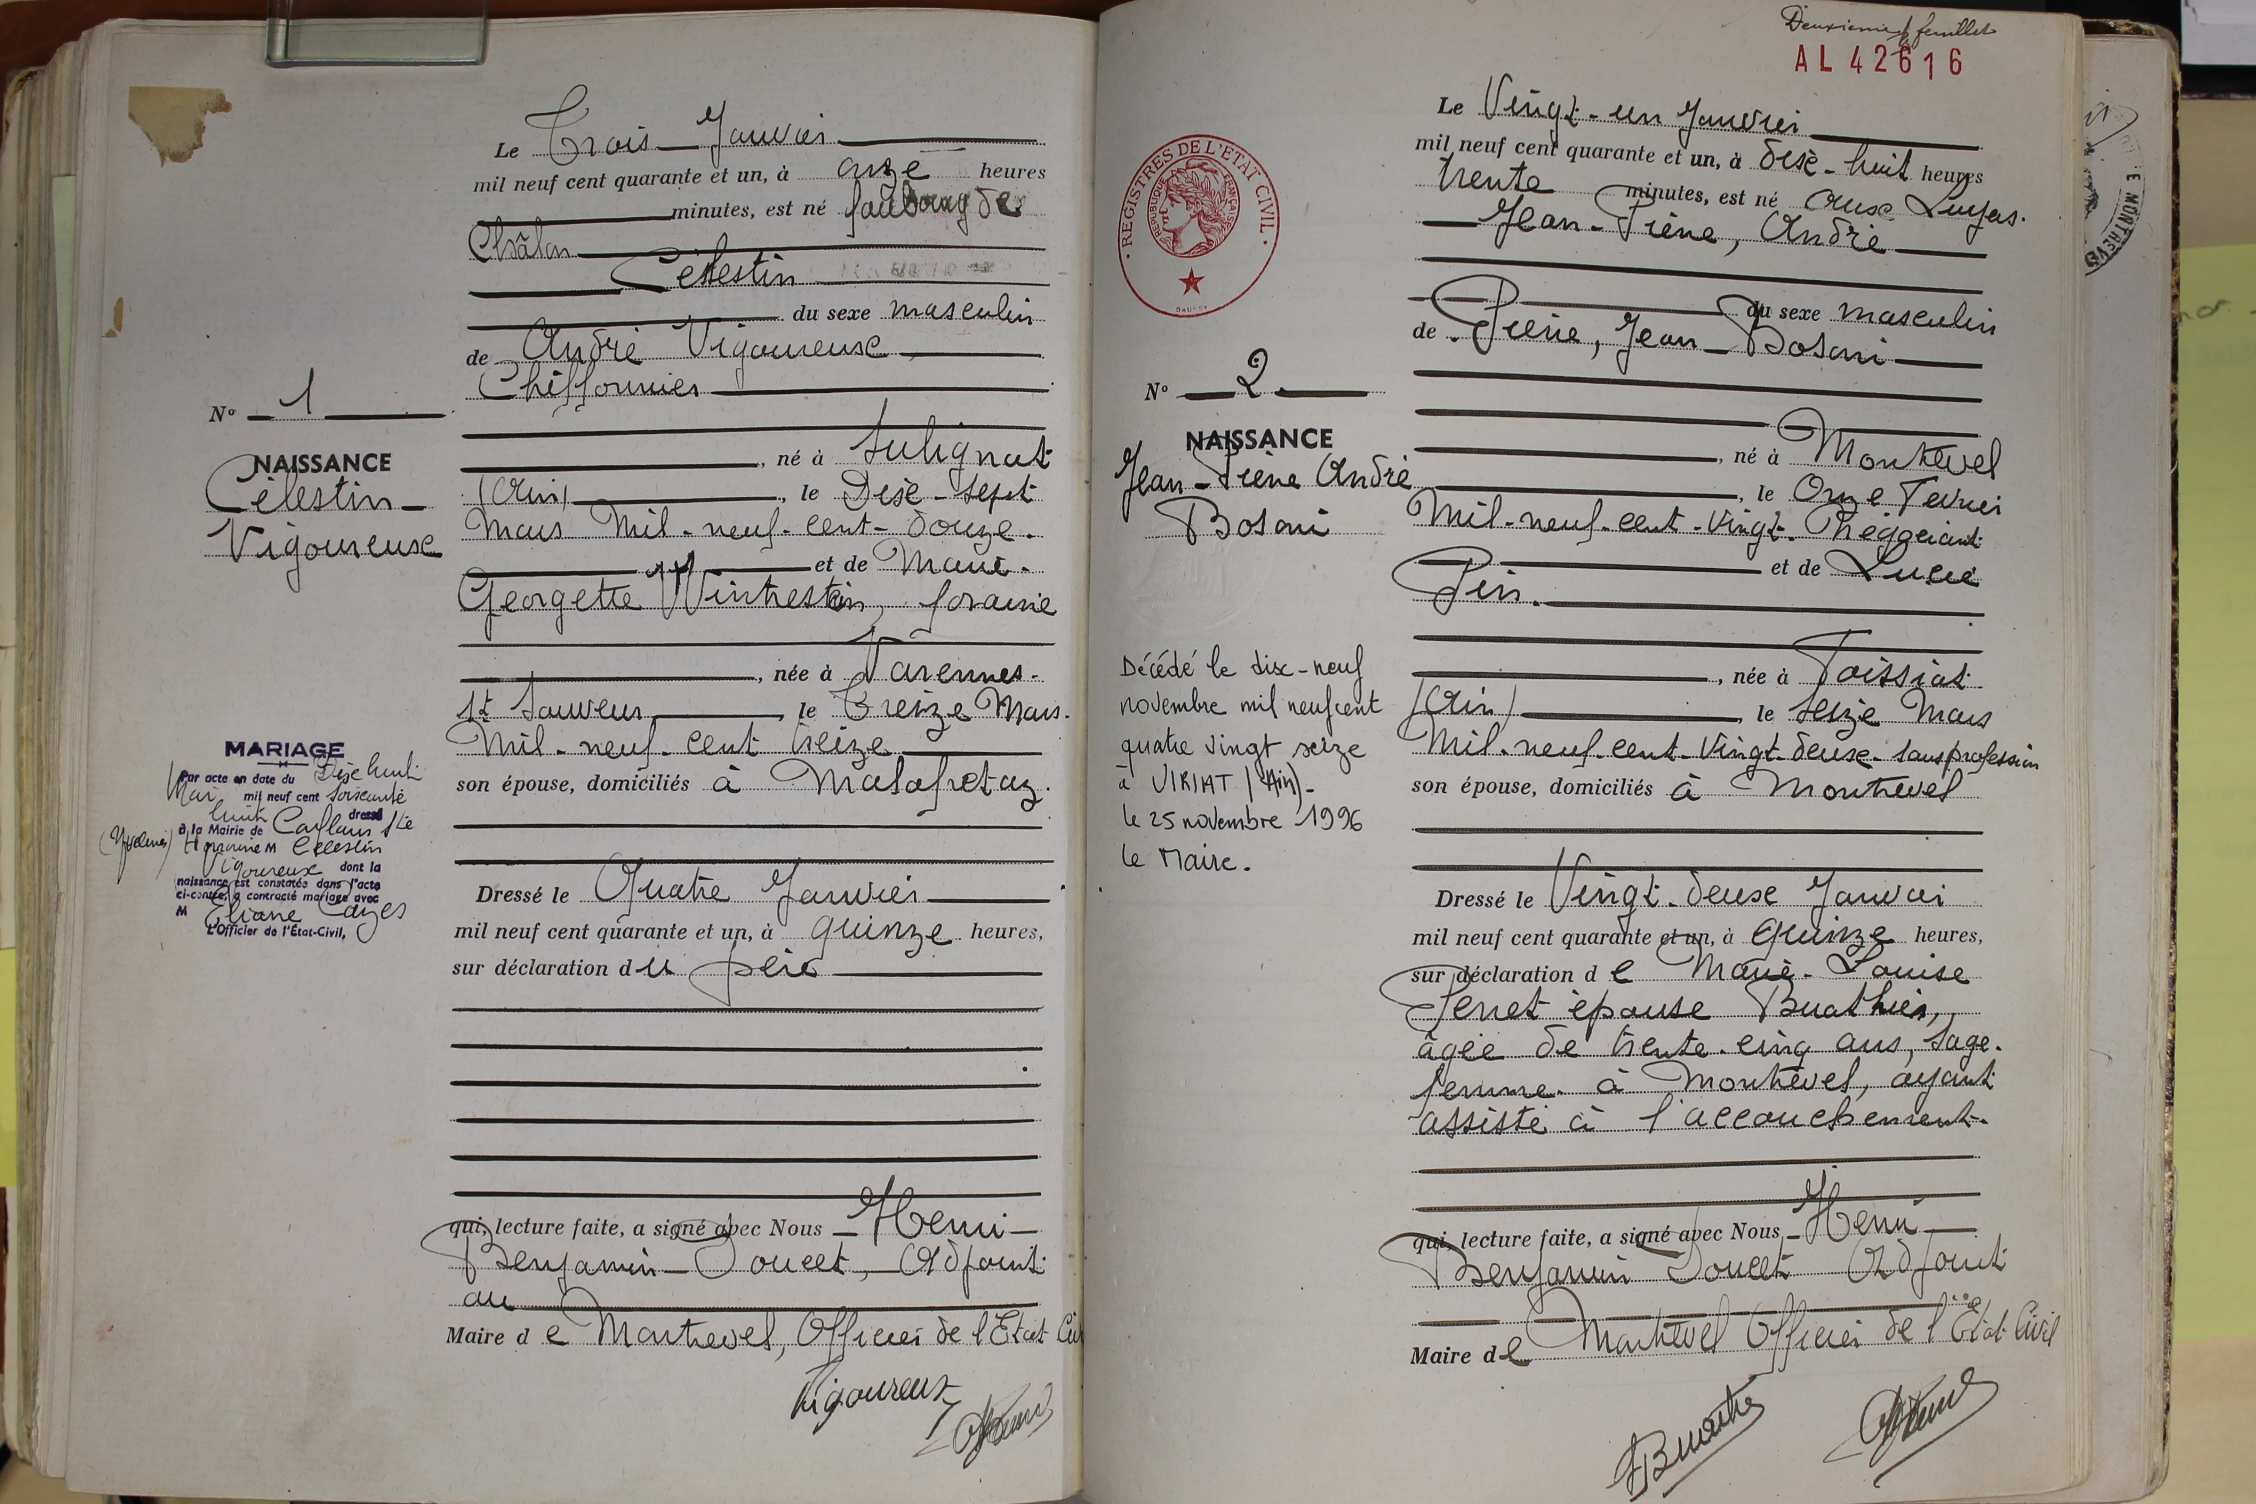 Le Trois Janvier
mil neuf cent quarante et un, à onze heures
minutes, est né faubourg de
Châlon
Célestin
du sexe masculin
de André Vigoureux
Chiffonnier
né à Sulignat
(Ain), le Dix-sept
Mars Mil-neuf-cent-douze.
et de Marie-
Georgette Wintrestein, foraine
, née à Varennes-
St Sauveur, le Treize Mars.
Mil-neuf-cent treize
son épouse, domiciliés à Malafretaz.
Dressé le Quatre Janvier
mil neuf cent quarante et un, à quinze heures,
sur déclaration du père
qui, lecture faite, a signé avec Nous Henri
Benjamin Doucet, Adjoint
au
Maire de Montrevel, Officier de l'Etat Civ
Vigoureux
N° 1
NAISSANCE
Célestin
Vigoureux
MARIAGE
Par acte en date du Dix huit
Mai mil neuf cent soixante
huit dressé
à la Mairie de Conflans Ste
(Yvelines) Honorine M Célestin
Vigoureux dont la
naissance est constatée dans l'acte
ci-contre, a contracté mariage avec
M Eliane Cayes
L'Officier de l'État-Civil,
Deuxième feuillet
AL 42616
REGISTRES DE L'ETAT CIVIL
REPUBLIQUE FRANÇAISE
Le Vingt-un Janvier
mil neuf cent quarante et un, à dix-huit heures
trente minutes, est né aux Luyers.
Jean-Pierre, André
du sexe masculin
de Pierre, Jean Bosoni
, né à Montrevel
, le Onze Février
Mil-neuf-cent-vingt. Négociant
et de Lucie
Pin.
, née à Foissiat
(Ain), le Seize Mars
Mil-neuf-cent-vingt-deux. sans profession
son épouse, domiciliés à Montrevel
Dressé le Vingt-deux Janvier
mil neuf cent quarante et un, à Quinze heures,
sur déclaration de Marie-Louise
Perret épouse Buathier,
âgée de trente-cinq ans, sage-
femme à Montrevel, ayant
assisté à l'accouchement.
qui, lecture faite, a signé avec Nous Henri
Benjamin Doucet Adjoint
Maire de Montrevel Officier de l'Etat Civil
N° 2
NAISSANCE
Jean-Pierre André
Bosoni
Décédé le dix-neuf
novembre mil neuf cent
quatre vingt seize
à VIRIAT (Ain)-
le 25 novembre 1996
le Maire.